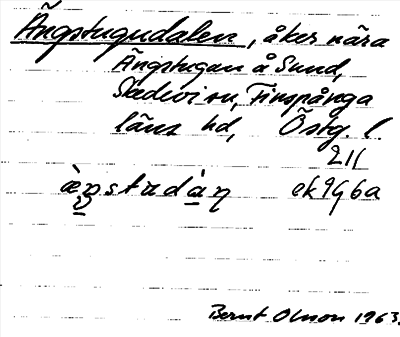 Ängstugudalen, åker nära
Ängstugan å Sund,
Skedevi sn, Finspånga
läns hd, Östg. l
211
ek 9g6a
Bernt Olsson 1963.